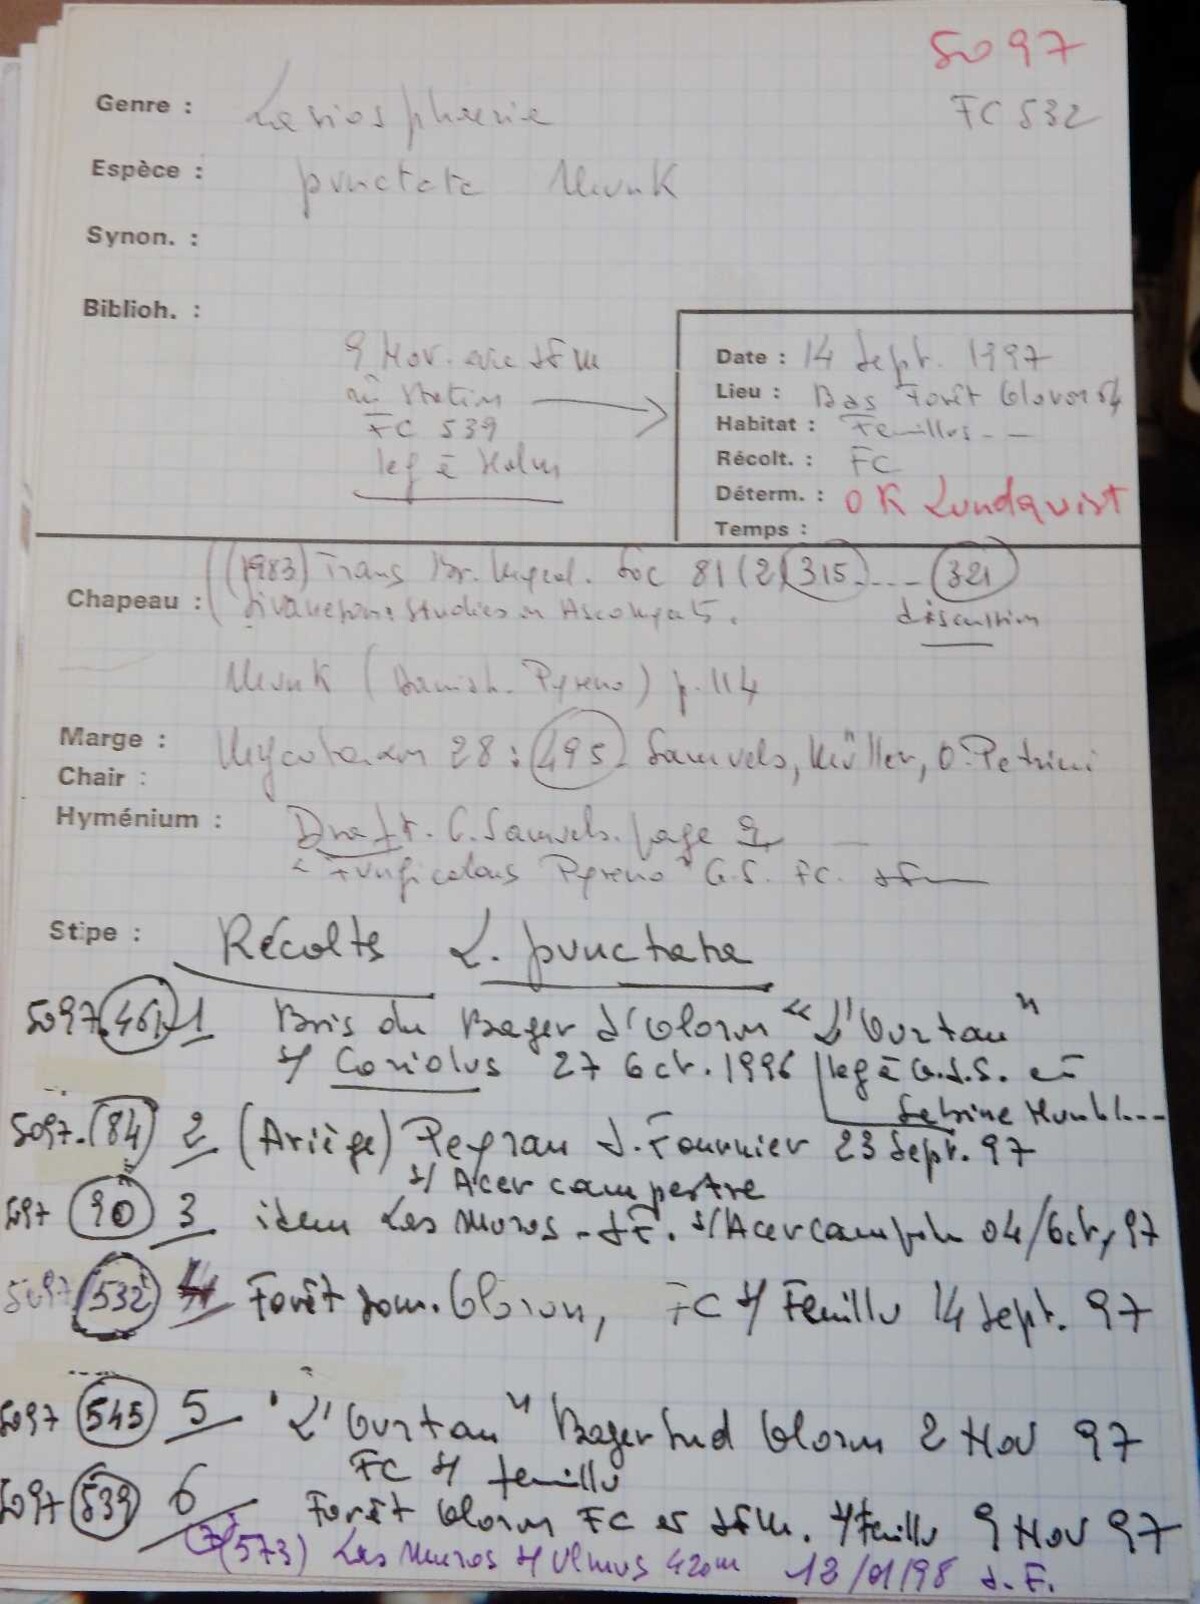 5097
Genre : Lasiosphaeria FC 532
Espèce : punctata Munk
Synon. :
Biblioh. :
9 Nov. avec JFM
FC 539
leg à Holm
Date : 14 Sept. 1997
Lieu : Bas Forêt Oloron 64
Habitat : Feuillus - -
Récolt. : FC
Déterm. : OK Lundquist
Temps :
(1983) Trans Br. Mycol. Soc 81 (2) 315 .... 321
Chapeau : Sivanesan: Studies on Ascomycets. discussion
Munk (Danish. Pyreno) p. 114
Marge : Mycotaxon 28 : 495 Samuels, Müller, O. Petrini
Chair :
Hyménium : Draft. G. Samuels. page 9
"Fungicolous Pyreno" G.S. FC. JFM
Stipe : Récolts L. punctata
5097. 461 1 Bois du Bager d'Oloron "L'Ourtau"
s/ Coriolus 27 Oct. 1996 leg à G.J.S. et
Sabine
5097. (84) 2 (Ariège) Peyrau J. Fournier 23 Sept. 97
s/ Acer campestre
5097 90 3 idem Las Muros - JF. s/ Acer 04/Oct, 97
5097 532 4 Forêt dom. Oloron, FC s/ Feuillu 14 Sept. 97
5097 545 5 "L'Ourtau" Bager Sud Oloron 2 Nov 97
FC s/ feuillu
5097 539 6 Forêt Oloron FC et JFM. s/ Feuillu 9 Nov 97
7 (573) Las Muros s/ Ulmus 420m 13/01/98 J. F.